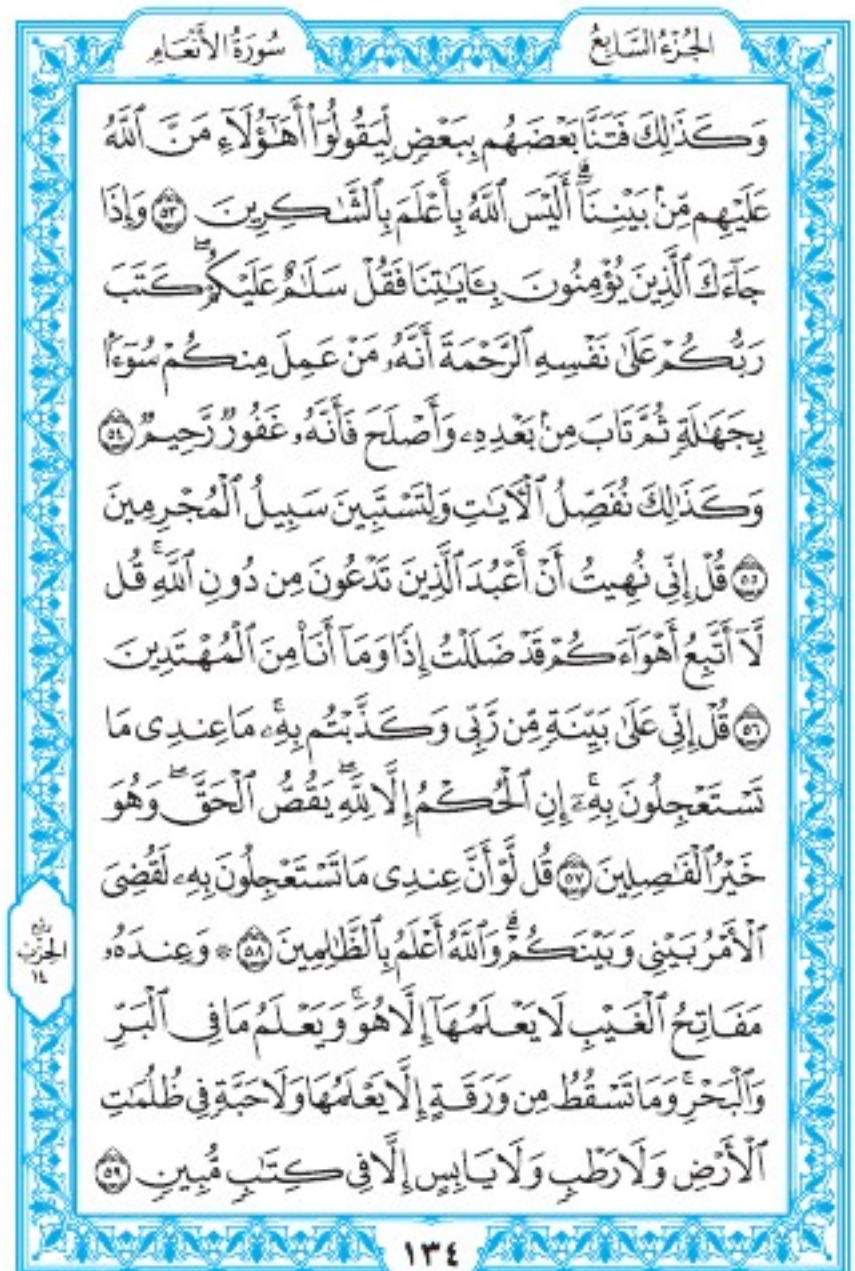 الجُزْءُ السَّابِعُ
سُورَةُ الأَنْعَامِ
وَكَذَٰلِكَ فَتَنَّا بَعْضَهُم بِبَعْضٍ لِّيَقُولُوٓا۟ أَهَـٰٓؤُلَآءِ مَنَّ ٱللَّهُ
عَلَيْهِم مِّنۢ بَيْنِنَآ ۗ أَلَيْسَ ٱللَّهُ بِأَعْلَمَ بِٱلشَّـٰكِرِينَ ٥٣ وَإِذَا
جَآءَكَ ٱلَّذِينَ يُؤْمِنُونَ بِـَٔايَـٰتِنَا فَقُلْ سَلَـٰمٌ عَلَيْكُمْ ۖ كَتَبَ
رَبُّكُمْ عَلَىٰ نَفْسِهِ ٱلرَّحْمَةَ أَنَّهُۥ مَنْ عَمِلَ مِنكُمْ سُوٓءًۢا
بِجَهَـٰلَةٍ ثُمَّ تَابَ مِنۢ بَعْدِهِۦ وَأَصْلَحَ فَأَنَّهُۥ غَفُورٌ رَّحِيمٌ ٥٤
وَكَذَٰلِكَ نُفَصِّلُ ٱلْـَٔايَـٰتِ وَلِتَسْتَبِينَ سَبِيلُ ٱلْمُجْرِمِينَ
٥٥ قُلْ إِنِّى نُهِيتُ أَنْ أَعْبُدَ ٱلَّذِينَ تَدْعُونَ مِن دُونِ ٱللَّهِ ۚ قُل
لَّآ أَتَّبِعُ أَهْوَآءَكُمْ ۙ قَدْ ضَلَلْتُ إِذًا وَمَآ أَنَا۠ مِنَ ٱلْمُهْتَدِينَ
٥٦ قُلْ إِنِّى عَلَىٰ بَيِّنَةٍ مِّن رَّبِّى وَكَذَّبْتُم بِهِۦ ۚ مَا عِندِى مَا
تَسْتَعْجِلُونَ بِهِۦٓ ۚ إِنِ ٱلْحُكْمُ إِلَّا لِلَّهِ ۖ يَقُصُّ ٱلْحَقَّ ۖ وَهُوَ
خَيْرُ ٱلْفَـٰصِلِينَ ٥٧ قُل لَّوْ أَنَّ عِندِى مَا تَسْتَعْجِلُونَ بِهِۦ لَقُضِىَ
ٱلْأَمْرُ بَيْنِى وَبَيْنَكُمْ ۗ وَٱللَّهُ أَعْلَمُ بِٱلظَّـٰلِمِينَ ٥٨ ۞ وَعِندَهُۥ
مَفَاتِحُ ٱلْغَيْبِ لَا يَعْلَمُهَآ إِلَّا هُوَ ۚ وَيَعْلَمُ مَا فِى ٱلْبَرِّ
وَٱلْبَحْرِ ۚ وَمَا تَسْقُطُ مِن وَرَقَةٍ إِلَّا يَعْلَمُهَا وَلَا حَبَّةٍ فِى ظُلُمَـٰتِ
ٱلْأَرْضِ وَلَا رَطْبٍ وَلَا يَابِسٍ إِلَّا فِى كِتَـٰبٍ مُّبِينٍ ٥٩
ربع
الحزب
١٤
١٣٤